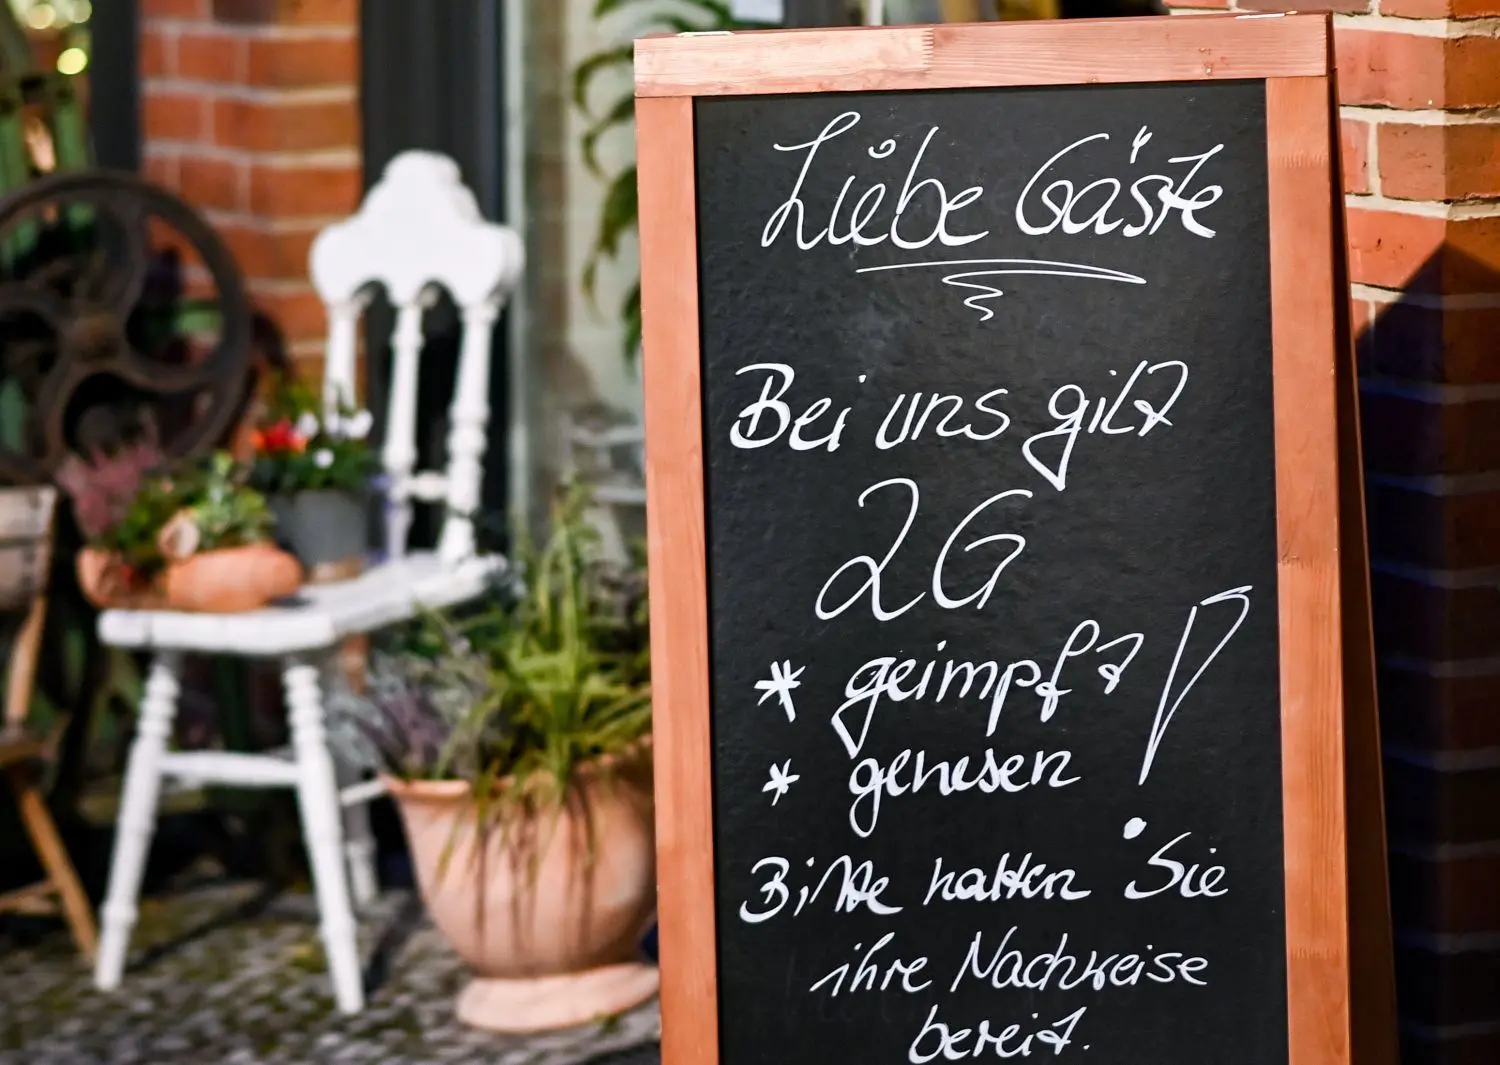 Liebe Gäste
Bei uns gilt
2G
* geimpft
* genesen !
Bitte halten Sie
ihre Nachweise
bereit.